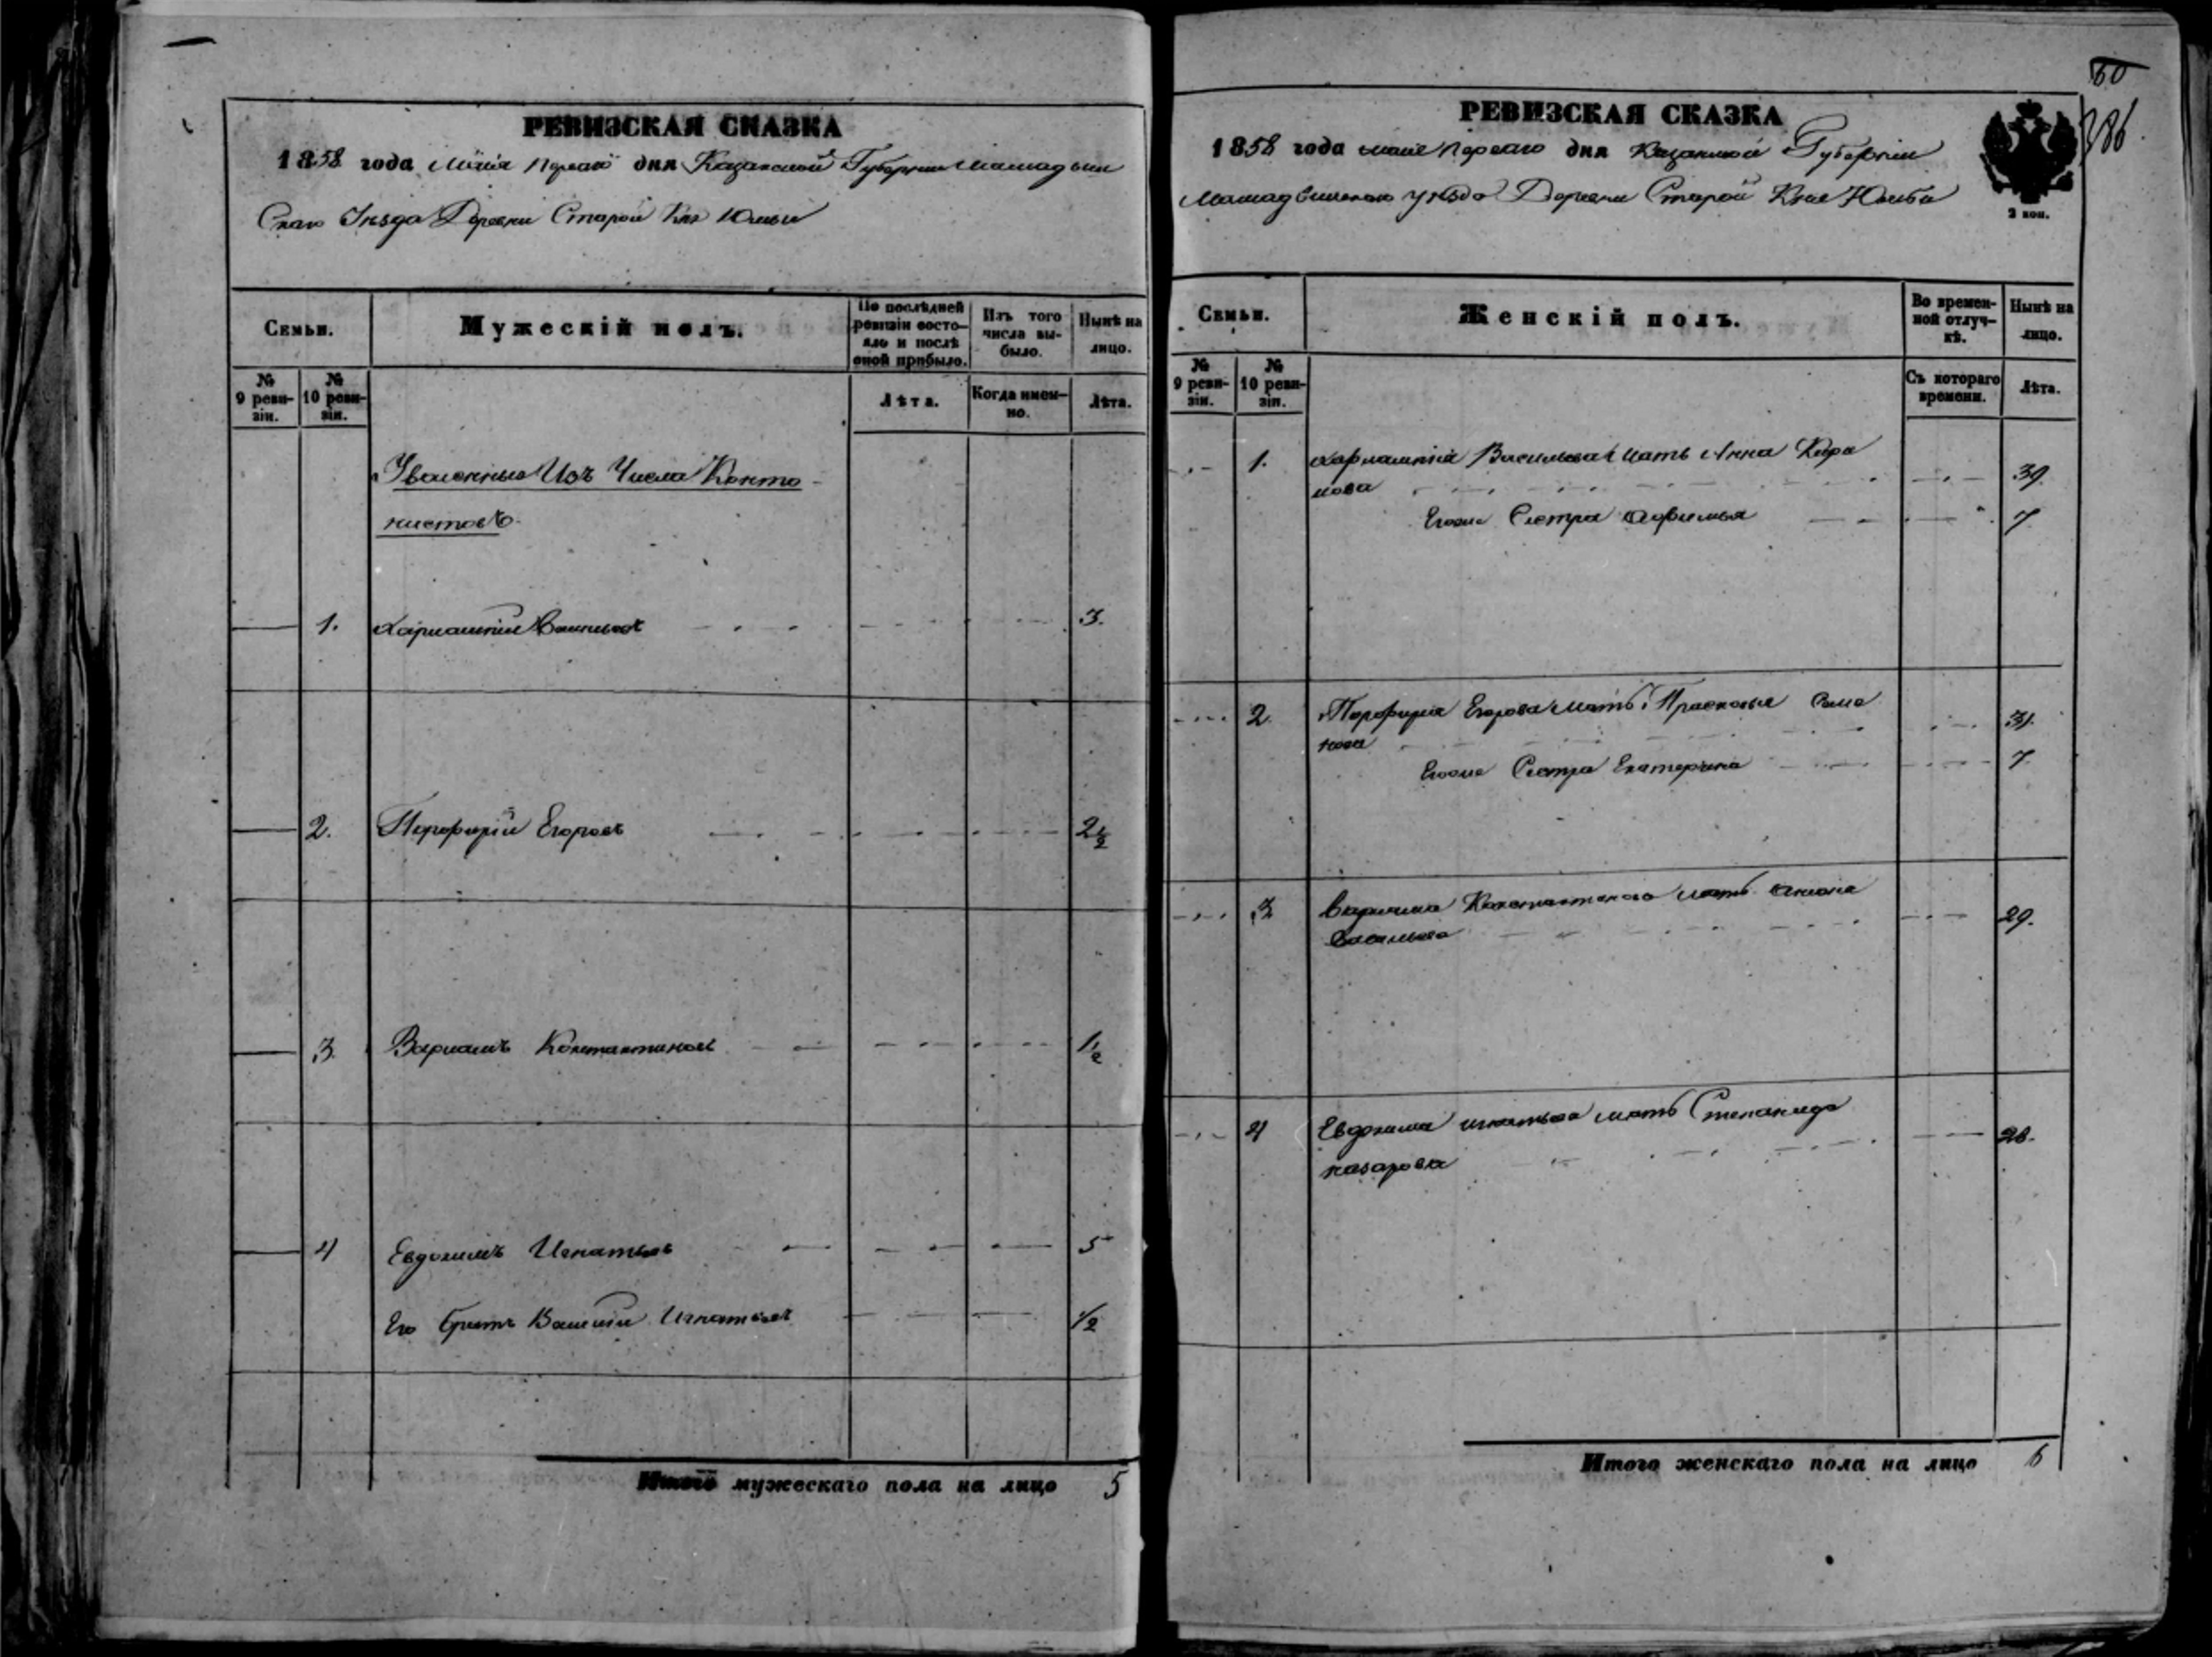 РЕВИЗСКАЯ СКАЗКА
1858 года Маія Перваго дня Казанской Губерніи Мамадыш
Скаго Уѣзда Деревни Старой Кня Юмьи
Семьи.
Мужескій полъ.
По послѣдней ревизіи состояло и послѣ оной прибыло.
Изъ того числа выбыло.
Нынѣ на лицо.
№ 9 ревизіи.
№ 10 ревизіи.
Лѣта.
Когда именно.
Лѣта.
Уволенные Изъ Числа Канто-
нистовъ.
1. Харлампій Васильевъ 3.
2. Порфирій Егоровъ 2 1/2
3. Варламъ Константиновъ 1/2
4 Евдокимъ Игнатьевъ 5
Его братъ Василій Игнатьевъ 1/2
Итого мужескаго пола на лицо 5
60
386.
РЕВИЗСКАЯ СКАЗКА
1858 года маія перваго дня Казанской Губерніи
Мамадышскаго уѣзда Деревни Старой Кня Юмьи
2 коп.
Семьи.
Женскій полъ.
Во временной отлучкѣ.
Нынѣ на лицо.
№ 9 ревизіи.
№ 10 ревизіи.
Съ котораго времени.
Лѣта.
1. Харлампія Васильева мать Анна
нова 39.
Егоже Сестра Афимья 7
2. Порфирія Егорова Мать Прасковья Семе
нова 31.
Егоже Сестра Екатерина 7
3 Варлама Константинова мать
Васильева 29.
4 Евдокима игнатьева мать Степанида
назарова 28.
Итого женскаго пола на лицо 6